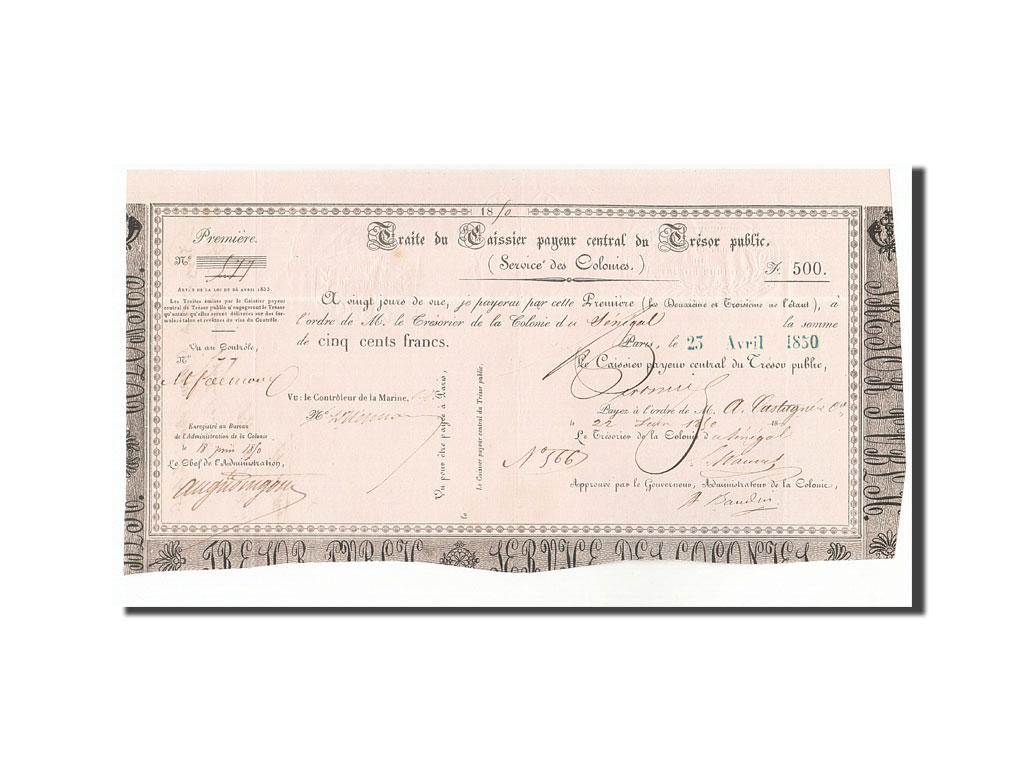 1850
Première.
Traite du Caissier payeur central du Trésor public.
Nº
(Service des Colonies.)
F. 500.
ART. 5 DE LA LOI DU 24 AVRIL 1833.
Les Traites émises par le Caissier payeur
central du Trésor public n'engageront le Trésor
qu'autant qu'elles seront délivrées sur des for-
mules à talon et revêtues du visa du Contrôle.
A vingt jours de vue, je payerai par cette Première (les Deuxième et Troisième ne l'étant), à
l'ordre de M. le Trésorier de la Colonie du Sénégal la somme
de cinq cents francs.
Paris, le 25 Avril 1850
Le Caissier payeur central du Trésor public,
Vu au Contrôle,
Nº 77
Vu: le Contrôleur de la Marine.
Enregistré au Bureau
de l'Administration de la Colonie
le 18 juin 1850
Le Chef de l'Administration,
Vu pour être payée à Paris,
le
Le Caissier payeur central du Trésor public,
Payez à l'ordre de M. A. Castagné
le 22 Juin 1850 184
Le Trésorier de la Colonie du Sénégal
Nº 566
Approuvé par le Gouverneur, Administrateur de la Colonie,
A Baudin
TRESOR PUBLIC. SERVICE DES COLONIES